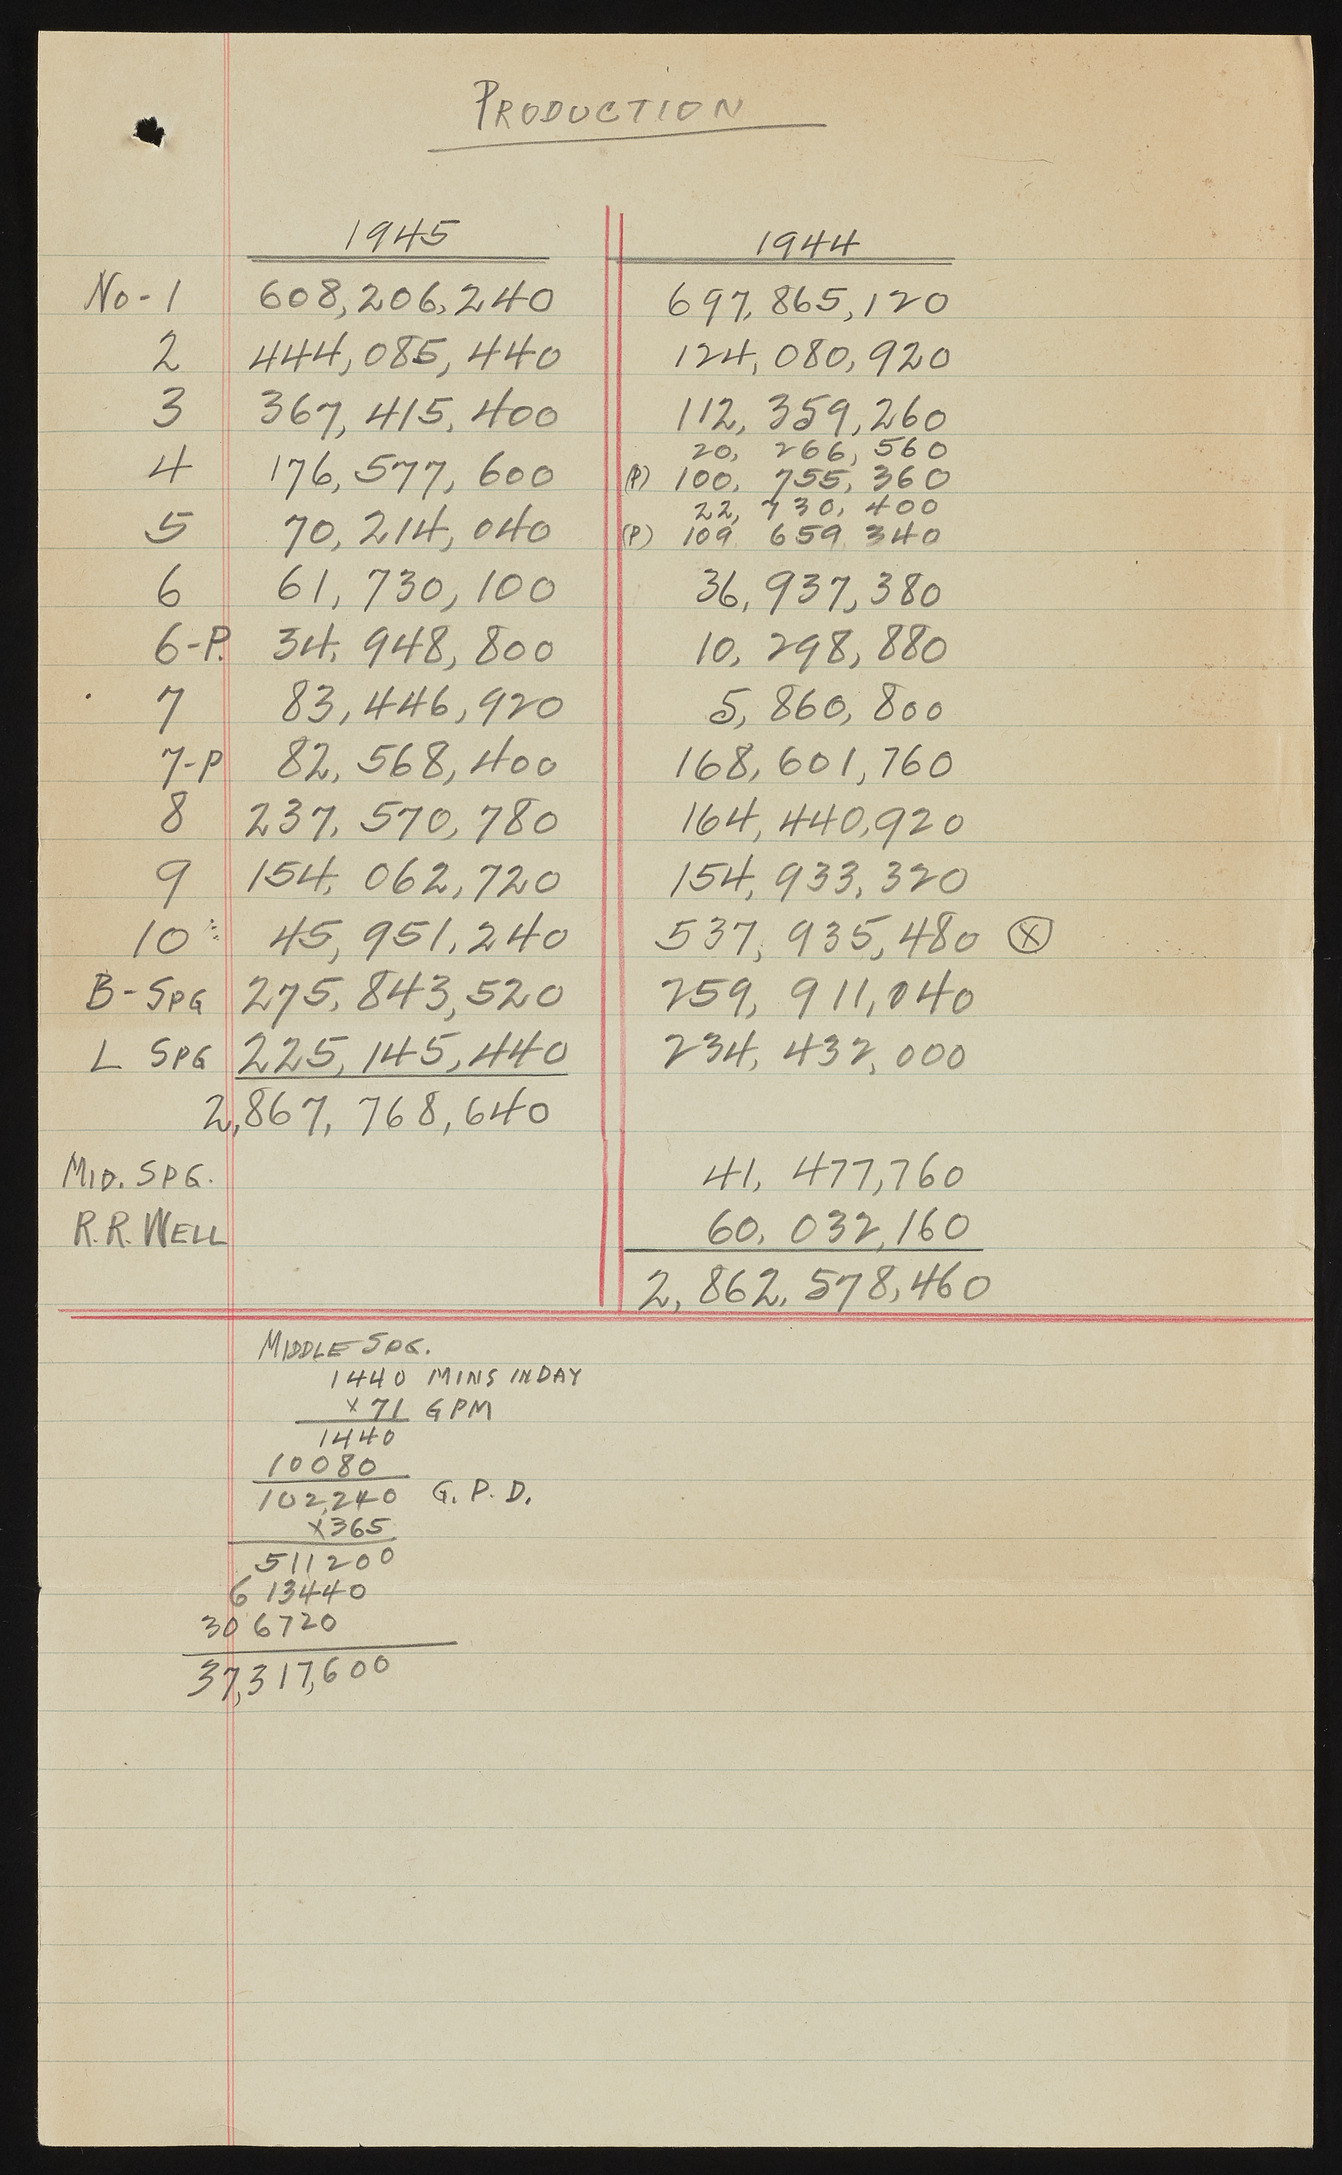 PRODUCTION
1945 1944
No-1 608,206,240 697,865,120
2 444,085,440 124,080,920
3 367,415,400 112,359,260
20, 266, 560
4 176,577,600 (P) 100, 755, 360
22, 730, 400
5 70,214,040 (P) 109 659 340
6 61,730,100 36,937,380
6-P. 34,948,800 10,298,880
7 83,446,920 5,860,800
7-P 82,568,400 168,601,760
8 237,570,780 164,440,920
9 154,062,720 154,933,320
10 45,951,240 537,935,480 (X)
B-SPG 275,843,520 259,911,040
L SPG 225,145,440 234,432,000
2,867,768,640
MID. SPG. 41,477,760
R.R. WELL 60,032,160
2,862,578,460
MIDDLE SPG.
1440 MINS IN DAY
x 71 GPM
1440
10080
102,240 G. P. D.
x365
511200
613440
306720
37,317,600